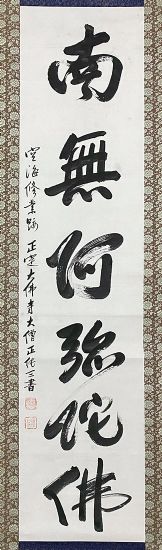 南無阿弥陀佛
空海修業跡 正運大佛寺大僧正